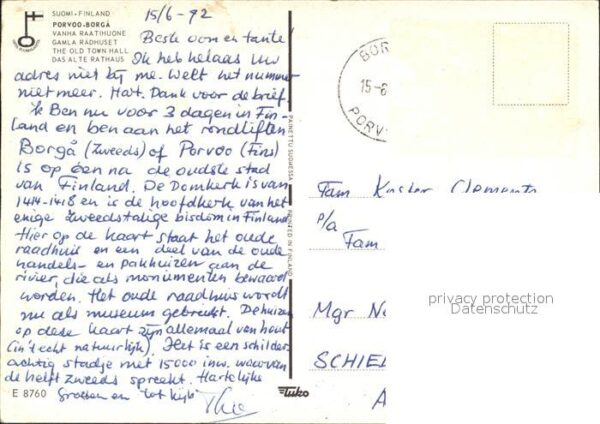 SUOMI - FINLAND
PORVOO - BORGÅ
VANHA RAATIHUONE
GAMLA RÅDHUSET
THE OLD TOWN HALL
DAS ALTE RATHAUS
15/6-92
Beste oom en tante!
Ik heb helaas uw
adres niet bij me. Welt het nummer
niet meer. Hart. Dank voor de brief
Ik Ben nu voor 3 dagen in Fin-
land en ben aan het rondliften
Borgå (Zweeds) of Porvoo (Fins)
is op één na de oudste stad
van Finland. De Domkerk is van
1414-1418 en is de hoofdkerk van het
enige zweedstalige bisdom in Finland
Hier op de kaart staat het oude
raadhuis en een deel van de oude
handels- en pakhuizen aan de
rivier, die als monumenten bewaard
worden. Het oude raadhuis wordt
nu als museum gebruikt. De huizen
op deze kaart zijn allemaal van hout
(in 't echt natuurlijk). Het is een schilder-
achtig stadje met 15000 inw. waarvan
de helft zweeds spreekt. Hartelijke
Groeten en "tot kijk"
Theo
E 8760
PAINETTU SUOMESSA PRINTED IN FINLAND
Tuko
BOR
15-6
PORV
Fam Koster Clements
p/a
Fam
Mgr No
SCHIE
privacy protection
Datenschutz